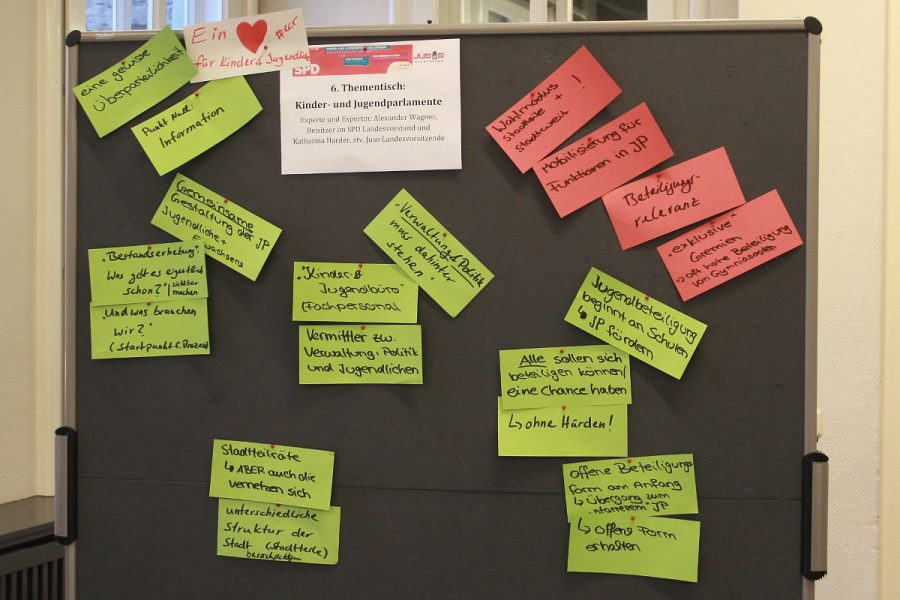 eine gewisse
Überparteilichkeit
Ein ❤ #ecr
für Kinder & Jugendliche
Punkt Null:
Information
SPD
JUSOS
6. Thementisch:
Kinder- und Jugendparlamente
Experte und Expertin: Alexander Wagner,
Beisitzer im SPD Landesvorstand und
Katharina Harder, stv. Juso Landesvorsitzende
Wahlmodus
Stadtteile + !
stadtweit
Mobilisierung für
Funktionen in JP
Beteiligungs-
relevanz
"exklusive"
Gremien
↳ oft hohe Beteiligung
von Gymnasiasten
Gemeinsame
Gestaltung der JP
Jugendliche +
Erwachsene
"Bestandserhebung"
Was gibt es eigentlich
schon? | sichtbar
machen
"Und was brauchen
wir?"
(Startpunkt f. Prozess)
"Verwaltung & Politik
muss dahinter
stehen"
"Kinder- &
Jugendbüro"
(Fachpersonal
Vermittler zw.
Verwaltung, Politik
und Jugendlichen
Jugendbeteiligung
beginnt an Schulen
↳ JP fördern
Alle sollen sich
beteiligen können/
eine Chance haben
↳ ohne Hürden!
Stadtteilräte
↳ ABER auch die
vernetzen sich
unterschiedliche
Struktur der
Stadt (Stadtteile)
berücksichtigen
offene Beteiligungs
form am Anfang
↳ Übergang zum
"starrerem" JP
↳ offene Form
erhalten